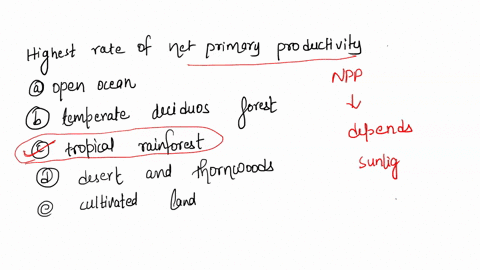 Highest rate of net primary productivity
ⓐ open ocean
ⓑ temperate deciduos forest
ⓒ tropical rainforest
ⓓ desert and thornwoods
ⓔ cultivated land
NPP
↓
depends
sunlig